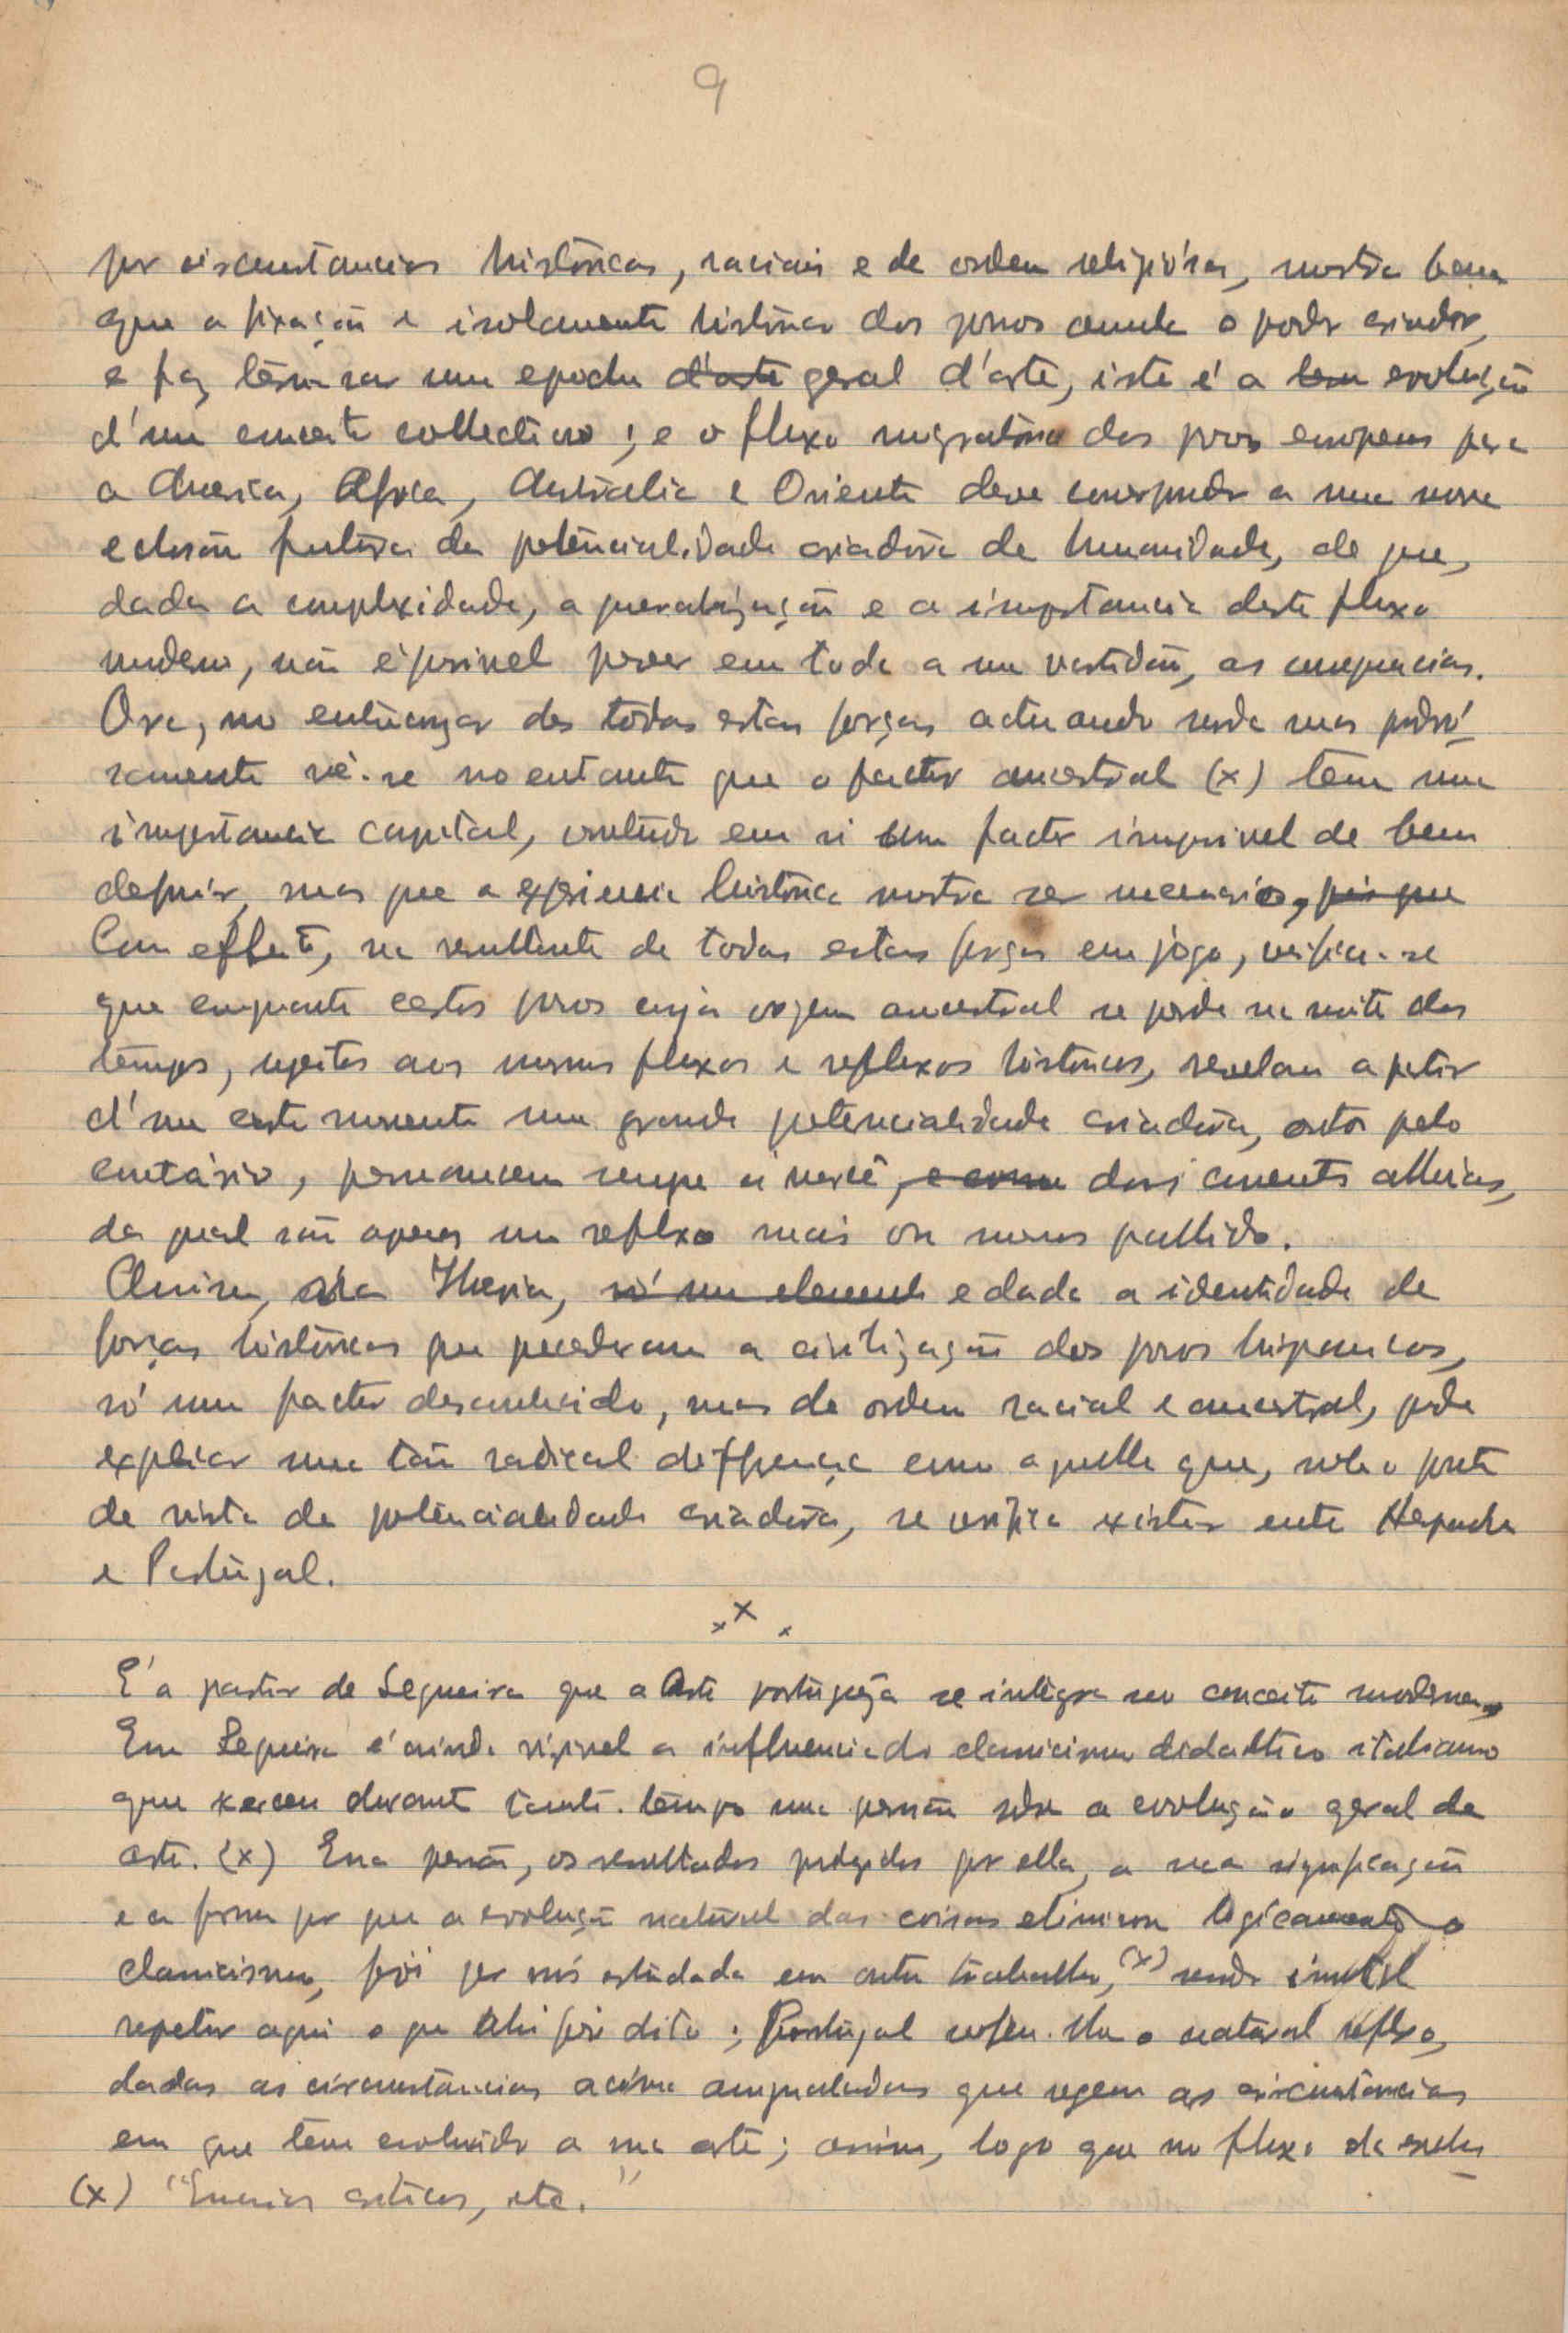 9
por circumstancias históricas, raciais e de ordem religiósa, mostra bem
que a fixação e isolamento histórico dos povos anula o poder criador,
e faz terminar uma epocha d'arte geral d'arte, isto é a evolução
d'um conceito collectivo; e o fluxo migratório dos povos europeus para
a America, Africa, Australia e Oriente deve corresponder a uma nova
eclosão futura da potencialidade criadôra da humanidade, de que,
dada a complexidade, a generalização e a importancia deste fluxo
moderno, não é possivel prever em toda a sua vastidão, as consequencias.
Ora, no entrançar de todas estas forças actuando umas mais poderó-
samente vê-se no entanto que o factor ancestral (x) tem uma
importancia capital, contendo em si um factor impossivel de bem
definir, mas que a experiencia histórica mostra ser necessario, pois que
Com effeito, na resultante de todas estas forças em jogo, verifica-se
que emquanto certos povos cuja origem ancestral se perde na noite dos
tempos, sujeitos aos mesmos fluxos e reflexos históricos, revelam a partir
d'um certo momento uma grande potencialidade criadôra, outros pelo
contrário, permanecem sempre á mercê, e como das correntes alheias,
da qual são apenas um reflexo mais ou menos pallido.
Assim, na Iberia, só um elemento e dada a identidade de
forças históricas que precederam a civilização dos povos hispanicos,
só um factor desconhecido, mas de ordem racial e ancestral, pode
explicar uma tão radical differença como aquella que, sob o ponto
de vista da potencialidade criadôra, se verifica existir entre Hespanha
e Portugal.
x x x
É a partir de Sequeira que a Arte portugueza se integra no conceito moderno.
Em Sequeira é ainda visivel a influencia do classicismo didactico italiano
que exerceu durante tanto tempo uma pressão sobre a evolução geral da
arte. (x) Essa pressão, os resultados produzidos por ella, a sua significação
e a forma por que a evolução natural das coisas eliminou logicamente o
classicismo, foi por nós estudada em outro trabalho, (x) sendo inutil
repetir aqui o que alli foi dito; Portugal soffeu-lhe o natural reflexo,
dadas as circumstâncias acima assignaladas que regem as circunstâncias
em que tem evoluido a sua arte; assim, logo que no fluxo da
(x) "Ensaios criticos, etc."